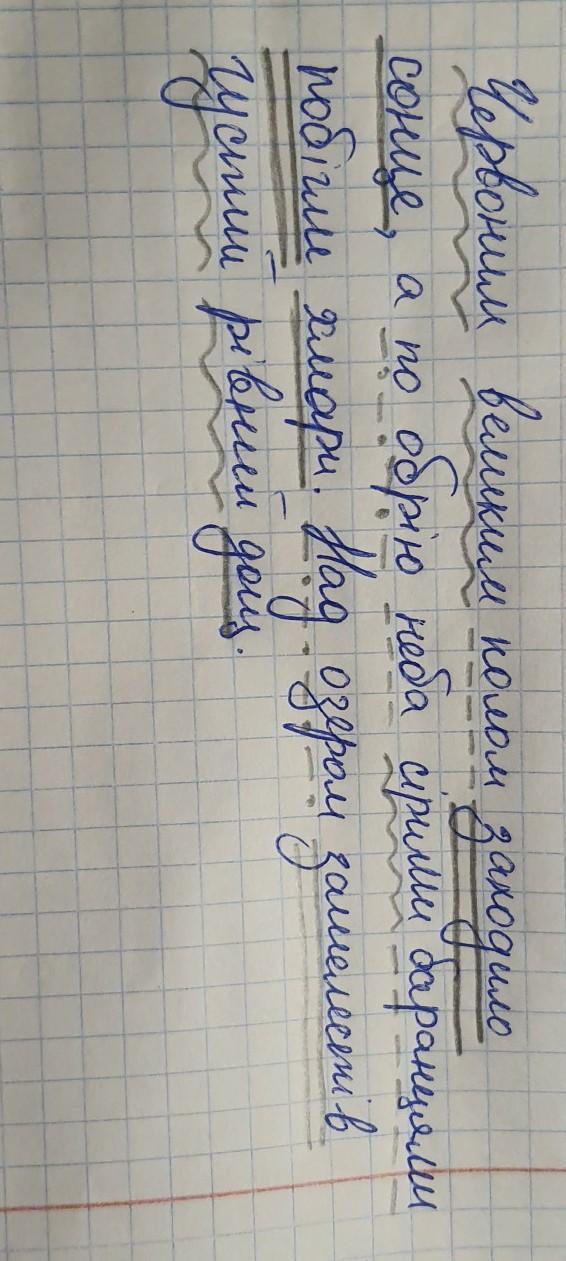 Червоним великим колом заходило
сонце, а по обрію неба сірими баранцями
побігли хмари. Над озером зашелестів
густий рівний дощ.